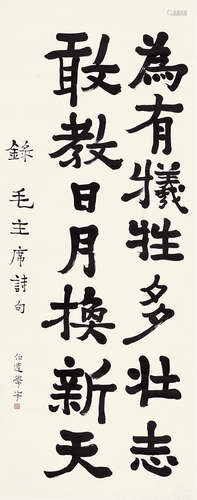 為有犧牲多壯志
敢教日月換新天
錄毛主席詩句